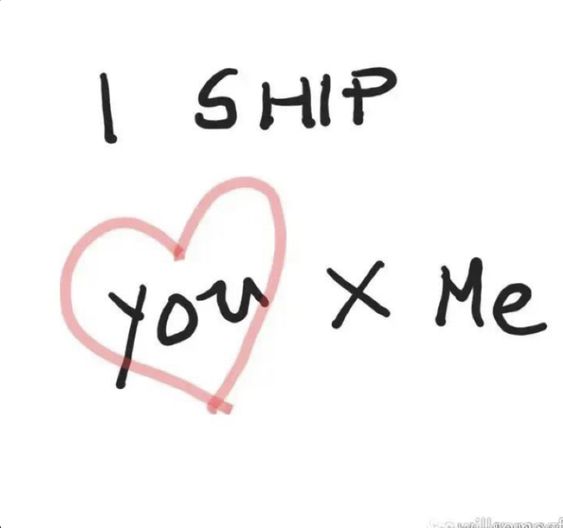 I SHIP
you X Me